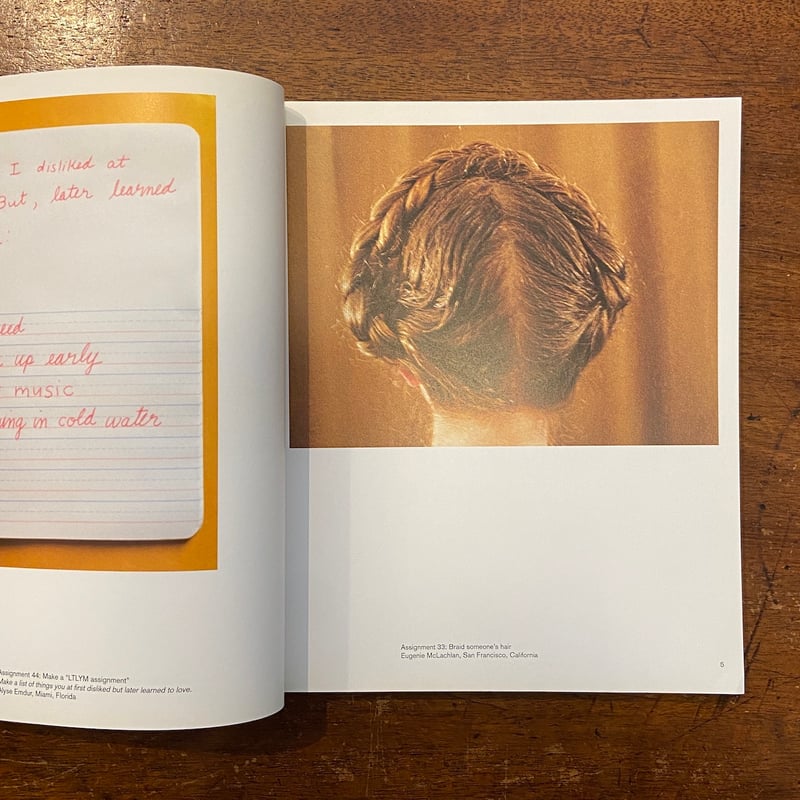 I disliked at
But, later learned
up early
music
in cold water
Assignment 44: Make a "LTLYM assignment"
Make a list of things you at first disliked but later learned to love.
Alyse Emdur, Miami, Florida
Assignment 33: Braid someone's hair
Eugenie McLachlan, San Francisco, California
5